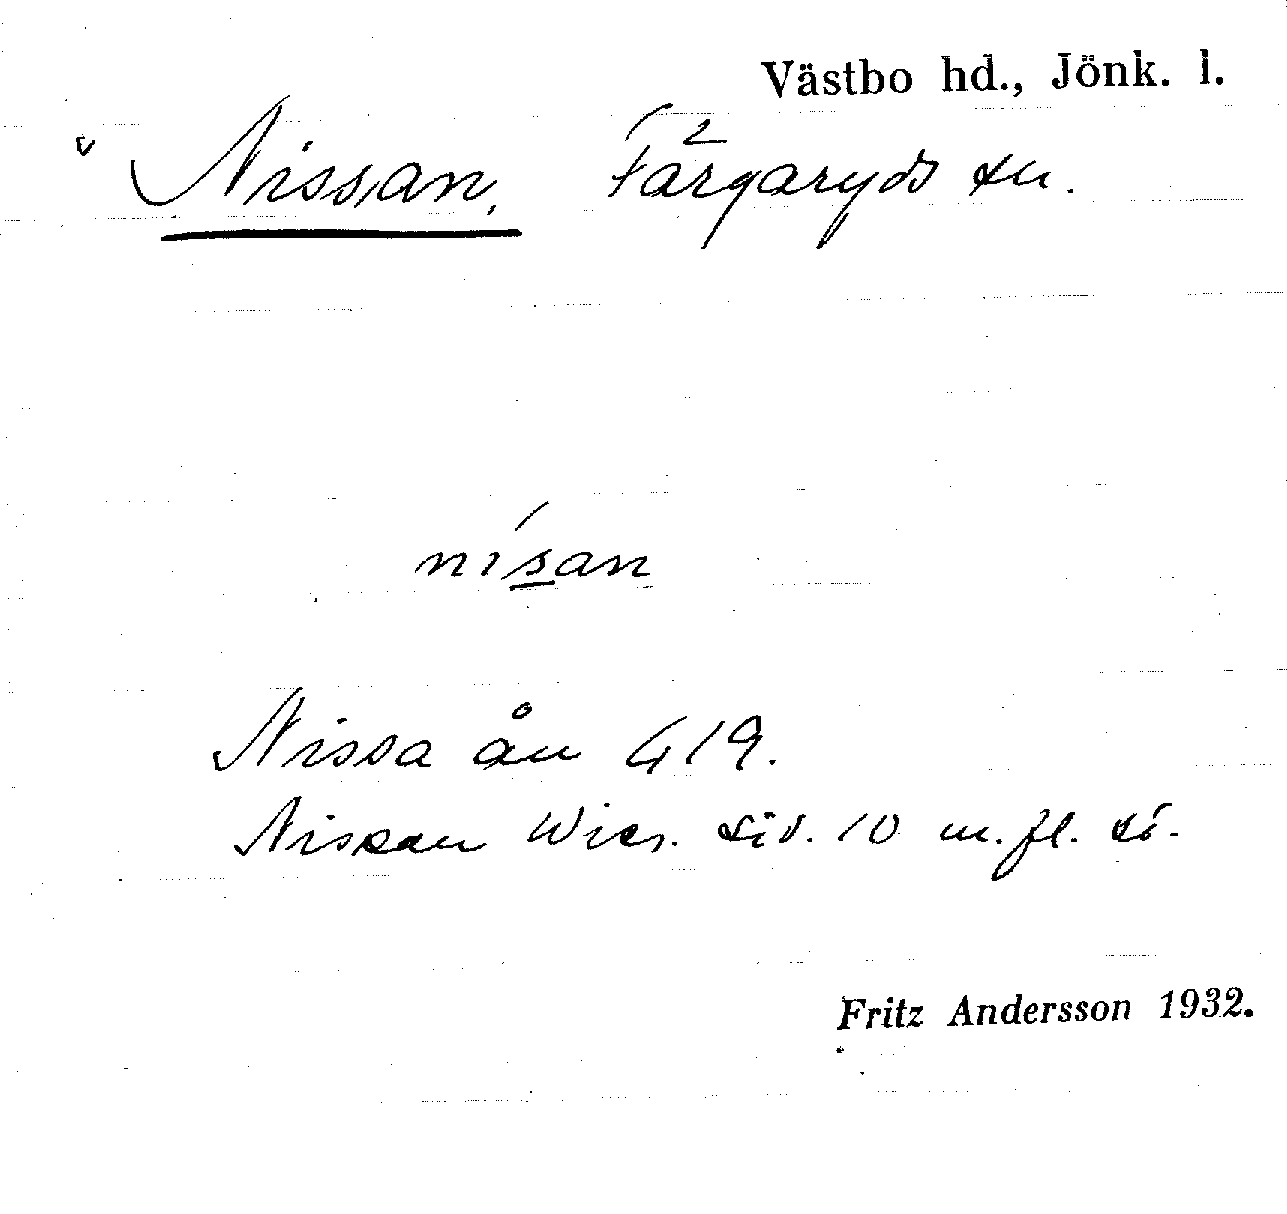 Västbo hd., Jönk. l.
Nissan, Färgaryds sn.
nisan
Nissa ån 419.
Nissan Wies. sid. 10 m.fl. st.
Fritz Andersson 1932.